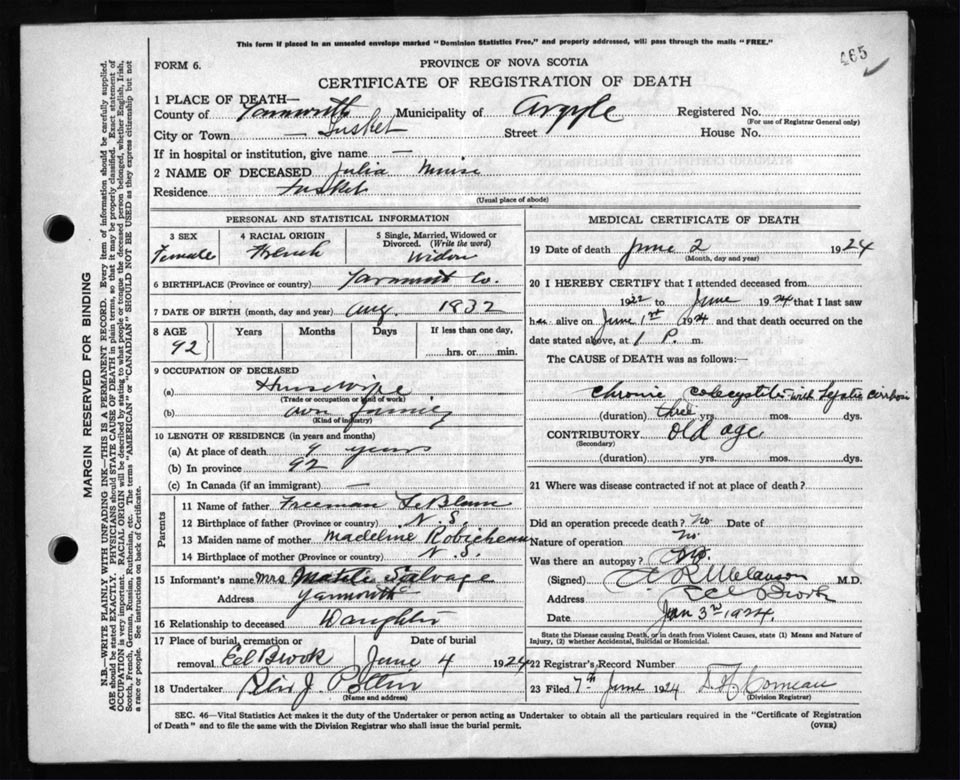 This form if placed in an unsealed envelope marked "Dominion Statistics Free," and properly addressed, will pass through the mails "FREE."
465
FORM 6.
PROVINCE OF NOVA SCOTIA
CERTIFICATE OF REGISTRATION OF DEATH
1 PLACE OF DEATH—
County of Yarmouth Municipality of Argyle Registered No.
(For use of Registrar General only)
City or Town — Tusket Street House No.
If in hospital or institution, give name —
2 NAME OF DECEASED Julia Muise
Residence Tusket
(Usual place of abode)
PERSONAL AND STATISTICAL INFORMATION
3 SEX 4 RACIAL ORIGIN 5 Single, Married, Widowed or Divorced. (Write the word)
Female French Widow
6 BIRTHPLACE (Province or country) Yarmouth Co.
7 DATE OF BIRTH (month, day and year) Aug. 1832
8 AGE Years Months Days If less than one day,
92 hrs. or min.
9 OCCUPATION OF DECEASED
(a) Housewife
(Trade or occupation or kind of work)
(b) own family
(Kind of industry)
10 LENGTH OF RESIDENCE (in years and months)
(a) At place of death years
(b) In province 92
(c) In Canada (if an immigrant) —
Parents
11 Name of father Freeman LeBlanc
12 Birthplace of father (Province or country) N. S.
13 Maiden name of mother Madeline Robicheau
14 Birthplace of mother (Province or country) N. S.
15 Informant's name Mrs Salvage
Address Yarmouth
16 Relationship to deceased Daughter
17 Place of burial, cremation or removal Date of burial
Eel Brook June 4 1924
18 Undertaker J.
(Name and address)
MEDICAL CERTIFICATE OF DEATH
19 Date of death June 2 1924
(Month, day and year)
20 I HEREBY CERTIFY that I attended deceased from
1922 to June 1924 that I last saw
her alive on June 1st 1924 and that death occurred on
date stated above, at 1 P. m.
The CAUSE of DEATH was as follows:—
Chronic with
(duration) three yrs. mos. dys.
CONTRIBUTORY old age
(Secondary)
(duration) yrs. mos. dys.
21 Where was disease contracted if not at place of death?
Did an operation precede death? No Date of
Nature of operation No
Was there an autopsy?
(Signed) Melanson M.D.
Address Eel Brook
Date Jun 3rd 1924.
State the Disease causing Death, or in death from Violent Causes, state (1) Means and Nature of Injury, (2) whether Accidental, Suicidal or Homicidal.
22 Registrar's Record Number
23 Filed 7th June 1924 Comeau
(Division Registrar)
SEC. 46—Vital Statistics Act makes it the duty of the Undertaker or person acting as Undertaker to obtain all the particulars required in the "Certificate of Registration
of Death" and to file the same with the Division Registrar who shall issue the burial permit.
(OVER)
MARGIN RESERVED FOR BINDING
N.B.—WRITE PLAINLY WITH UNFADING INK—THIS IS A PERMANENT RECORD. Every item of information should be carefully supplied.
AGE should be stated EXACTLY. PHYSICIANS should STATE CAUSE OF DEATH in plain terms, so that it may be properly classified. Exact statement of
OCCUPATION is very important. RACIAL ORIGIN will be described by stating to what people or tongue the deceased person belonged, whether English, Irish,
Scotch, French, German, Russian, Ruthenian, etc. The terms "AMERICAN" or "CANADIAN" SHOULD NOT BE USED as they express citizenship but not
a race or people. See instructions on back of Certificate.